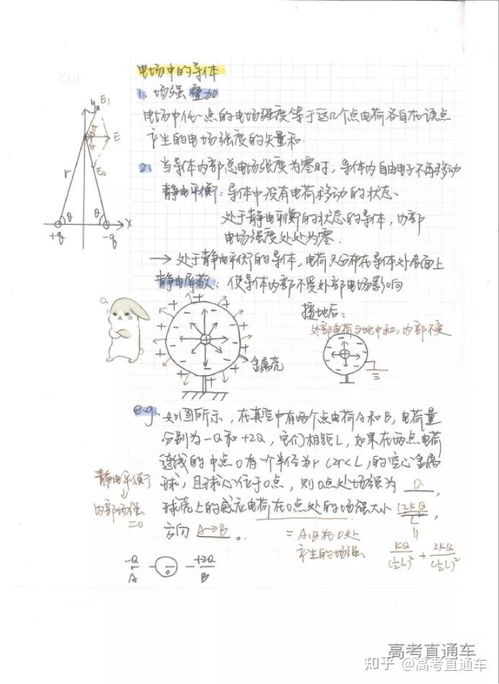 电场中的导体
1. 场强叠加
电场中任一点的电场强度等于这几个点电荷各自在该点
产生的电场强度的矢量和
2. 当导体内部总电场强度为零时，导体内自由电子不再移动
静电平衡：导体中没有电荷移动的状态
处于静电平衡的状态的导体，内部
电场强度处处为零.
→ 处于静电平衡的导体，电荷只分布在导体外表面上
静电屏蔽：使导体内部不受外部电场影响
接地后：
外部电荷与地中和，内部不变
金属壳
E₁
E
E₂
r
θ θ x
+q -q
e.g. 如图所示，在真空中有两个点电荷A和B，电荷量
分别为-Q和+2Q，它们相距L，如果在两点电荷
连线的中点O有一个半径为r(2r<L)的空心金属
球，且球心位于O点，则O点处场强为 0.
球壳上的感应电荷在O点处的场强大小 12kQ/L²
方向 A→B.
静电平衡
↓
内部场强
=0
= A,B在O处
产生的场强
kQ/(½L)² + 2kQ/(½L)²
-Q +2Q
A O B
高考直通车
知乎 @高考直通车